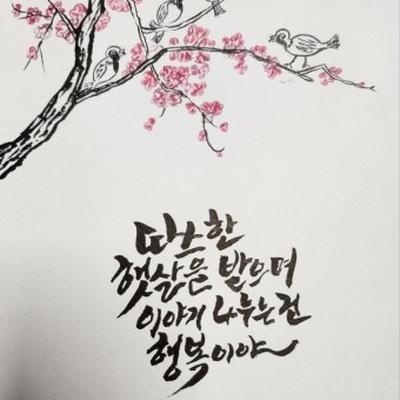 따스한
햇살을 받으며
이야기 나누는 건
행복이야